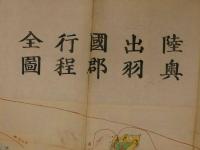 陸奧
出羽
國郡
行程
全圖